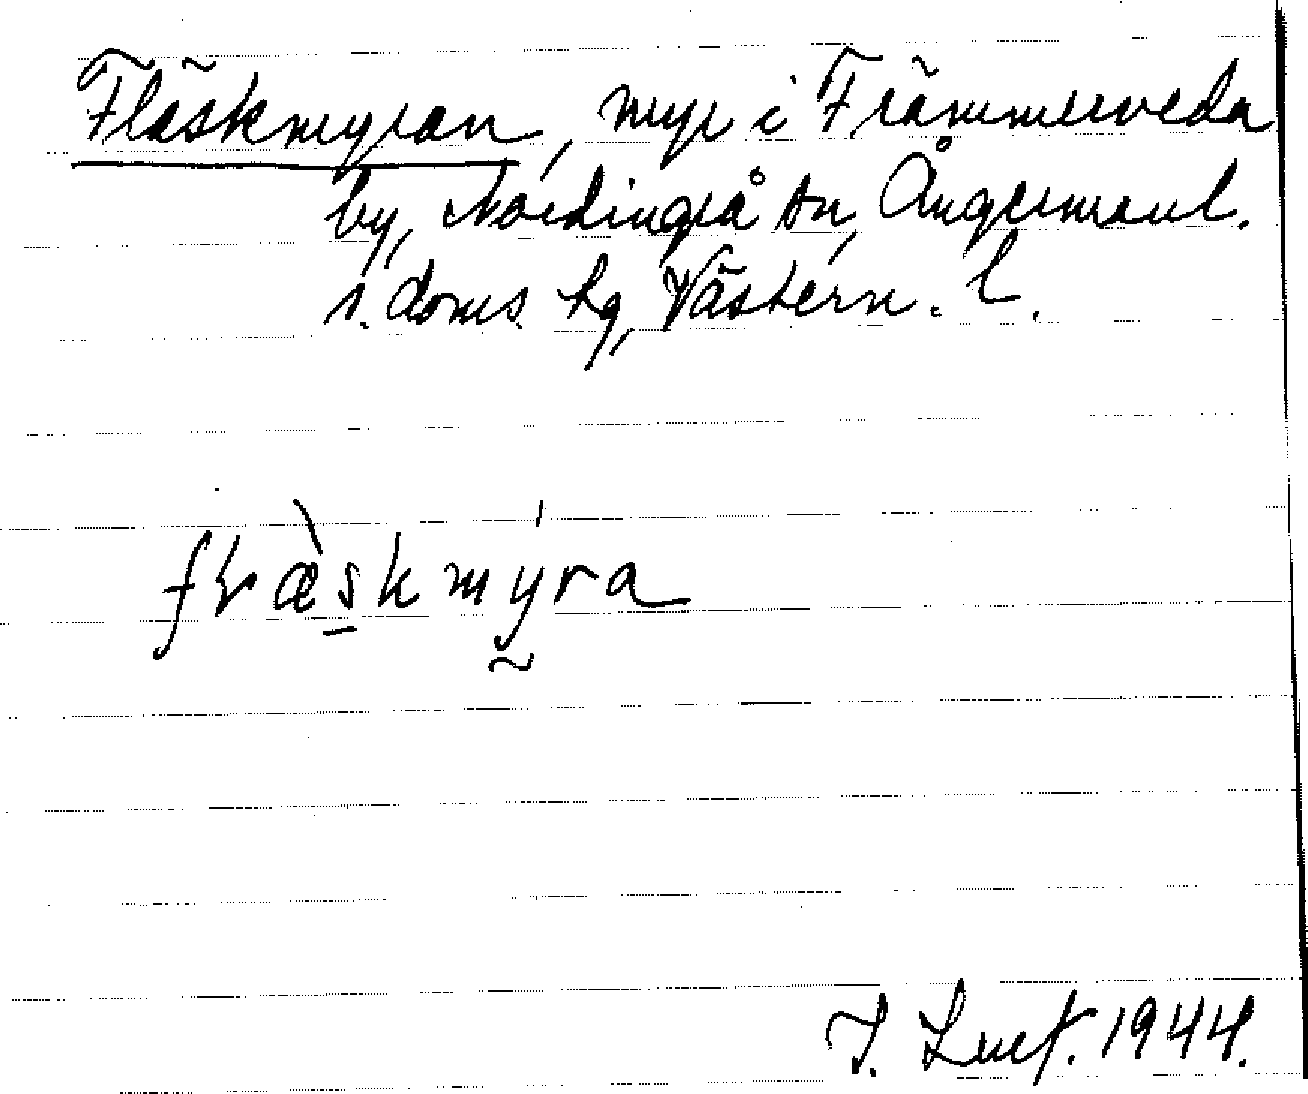 Fläskmyran, myr i Främmerveda
by, Nordingrå sn, Ångermanl.
s. doms. hg, Västern. l.
fɽæ̀skmýra
1944.